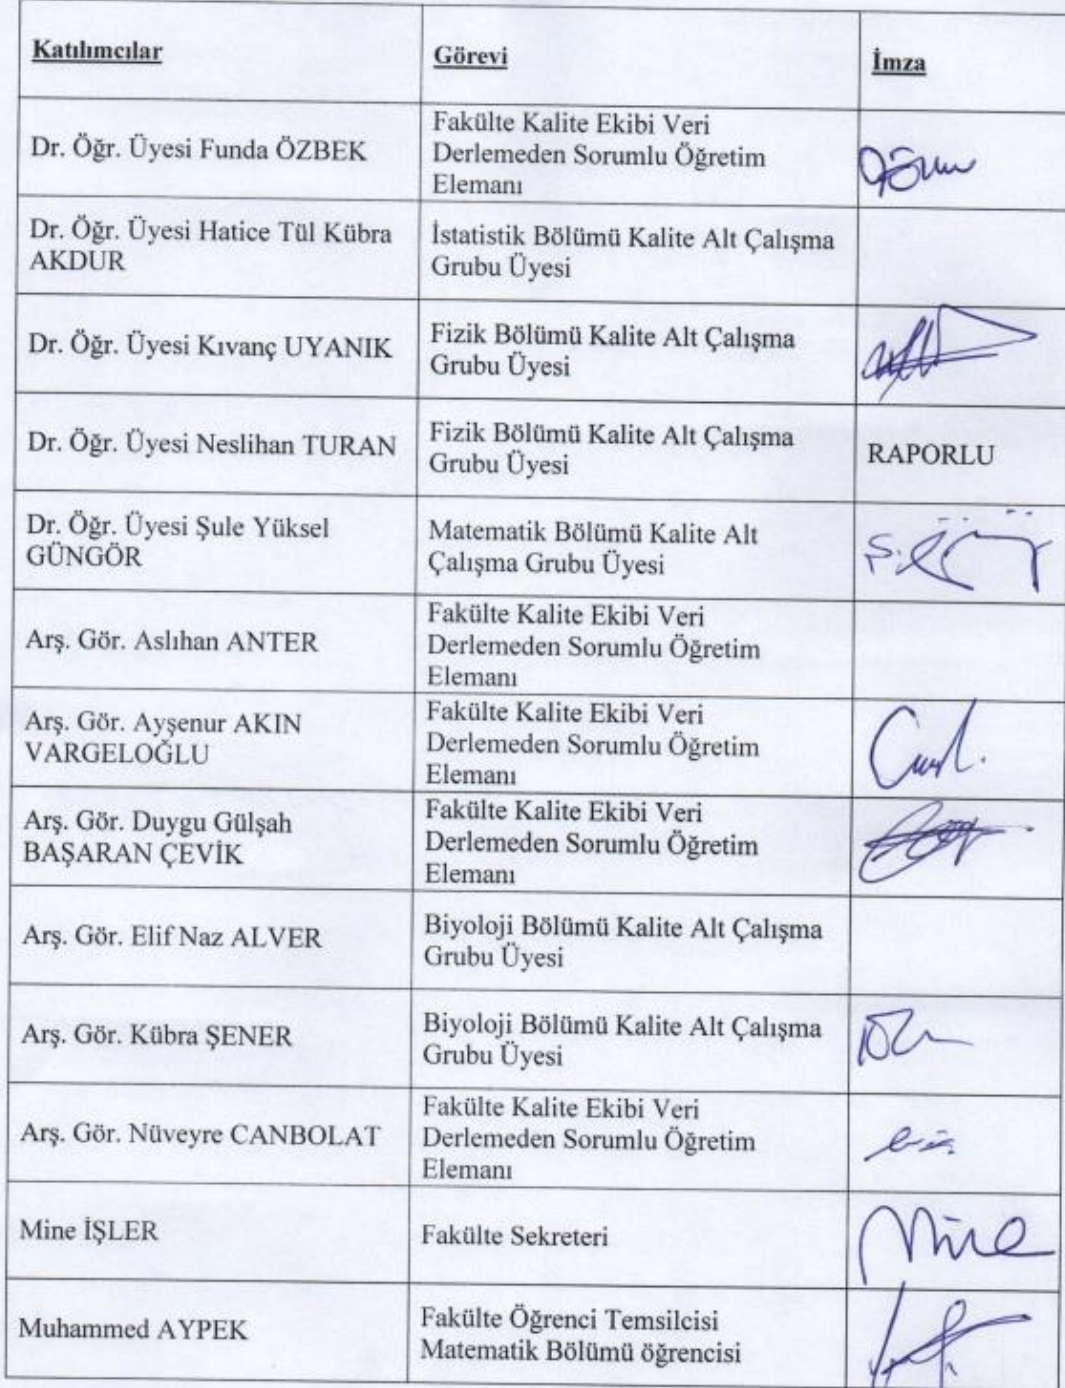 Katılımcılar Görevi İmza
Dr. Öğr. Üyesi Funda ÖZBEK
Fakülte Kalite Ekibi Veri
Derlemeden Sorumlu Öğretim
Elemanı
Dr. Öğr. Üyesi Hatice Tül Kübra
AKDUR
İstatistik Bölümü Kalite Alt Çalışma
Grubu Üyesi
Dr. Öğr. Üyesi Kıvanç UYANIK
Fizik Bölümü Kalite Alt Çalışma
Grubu Üyesi
Dr. Öğr. Üyesi Neslihan TURAN
Fizik Bölümü Kalite Alt Çalışma
Grubu Üyesi
RAPORLU
Dr. Öğr. Üyesi Şule Yüksel
GÜNGÖR
Matematik Bölümü Kalite Alt
Çalışma Grubu Üyesi
Arş. Gör. Aslıhan ANTER
Fakülte Kalite Ekibi Veri
Derlemeden Sorumlu Öğretim
Elemanı
Arş. Gör. Ayşenur AKIN
VARGELOĞLU
Fakülte Kalite Ekibi Veri
Derlemeden Sorumlu Öğretim
Elemanı
Arş. Gör. Duygu Gülşah
BAŞARAN ÇEVİK
Fakülte Kalite Ekibi Veri
Derlemeden Sorumlu Öğretim
Elemanı
Arş. Gör. Elif Naz ALVER
Biyoloji Bölümü Kalite Alt Çalışma
Grubu Üyesi
Arş. Gör. Kübra ŞENER
Biyoloji Bölümü Kalite Alt Çalışma
Grubu Üyesi
Arş. Gör. Nüveyre CANBOLAT
Fakülte Kalite Ekibi Veri
Derlemeden Sorumlu Öğretim
Elemanı
Mine İŞLER
Fakülte Sekreteri
Mine
Muhammed AYPEK
Fakülte Öğrenci Temsilcisi
Matematik Bölümü öğrencisi